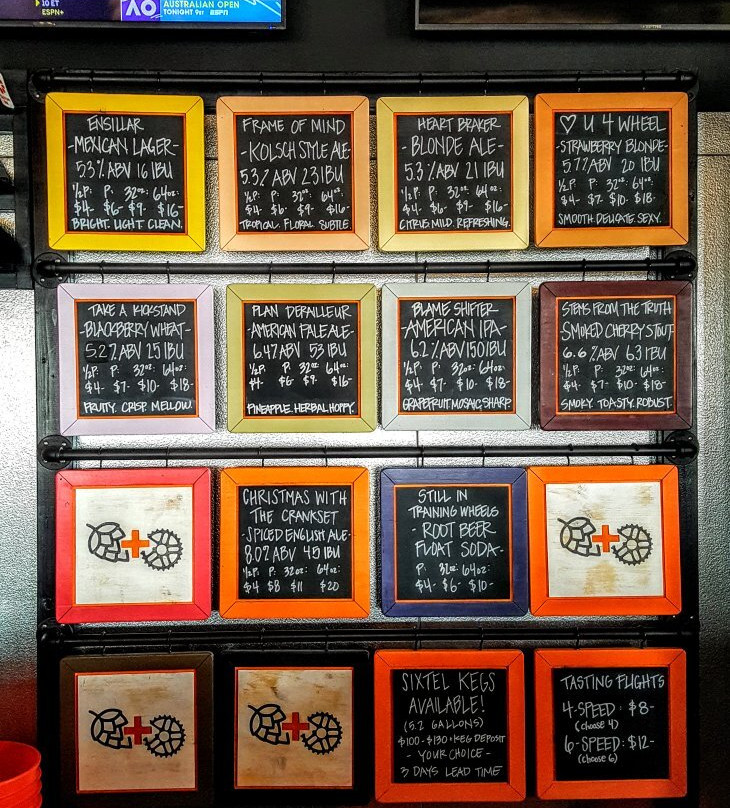 10 ET
ESPN+
AO
AUSTRALIAN OPEN
TONIGHT 9ET ESPN
ENSILLAR
-MEXICAN LAGER-
5.3% ABV 16 IBU
½P: P: 32oz: 64oz:
$4- $6- $9- $16-
BRIGHT. LIGHT. CLEAN.
FRAME OF MIND
-KOLSCH STYLE ALE-
5.3% ABV 23 IBU
½P: P: 32oz: 64oz:
$4- $6- $9- $16-
TROPICAL. FLORAL. SUBTLE
HEART BRAKER
-BLONDE ALE-
5.3% ABV 21 IBU
½P: P: 32oz: 64oz:
$4- $6- $9- $16-
CITRUS. MILD. REFRESHING.
♡ U 4 WHEEL
-STRAWBERRY BLONDE-
5.7% ABV 20 IBU
½P: P: 32oz: 64oz:
$4- $7- $10- $18-
SMOOTH. DELICATE. SEXY.
TAKE A KICKSTAND
-BLACKBERRY WHEAT-
5.2% ABV 25 IBU
½P: P: 32oz: 64oz:
$4- $7- $10- $18-
FRUITY. CRISP. MELLOW.
PLAN DERAILLEUR
-AMERICAN PALE ALE-
6.4% ABV 53 IBU
½P: P: 32oz: 64oz:
$4- $6- $9- $16-
PINEAPPLE. HERBAL. HOPPY.
BLAME SHIFTER
-AMERICAN IPA-
6.2% ABV 150 IBU
½P: P: 32oz: 64oz:
$4- $7- $10- $18-
GRAPEFRUIT. MOSAIC. SHARP
STEMS FROM THE TRUTH
-SMOKED CHERRY STOUT-
6.6% ABV 63 IBU
½P: P: 32oz: 64oz:
$4- $7- $10- $18-
SMOKY. TOASTY. ROBUST.
CHRISTMAS WITH
THE CRANKSET
-SPICED ENGLISH ALE-
8.0% ABV 45 IBU
½P: P: 32oz: 64oz:
$4 $8 $11 $20
STILL IN
TRAINING WHEELS
- ROOT BEER
FLOAT SODA-
P: 32oz: 64oz:
$4- $6- $10-
SIXTEL KEGS
AVAILABLE!
(5.2 GALLONS)
$100-$130 + KEG DEPOSIT
- YOUR CHOICE -
3 DAYS LEAD TIME
TASTING FLIGHTS
4-SPEED: $8-
(choose 4)
6-SPEED: $12-
(choose 6)